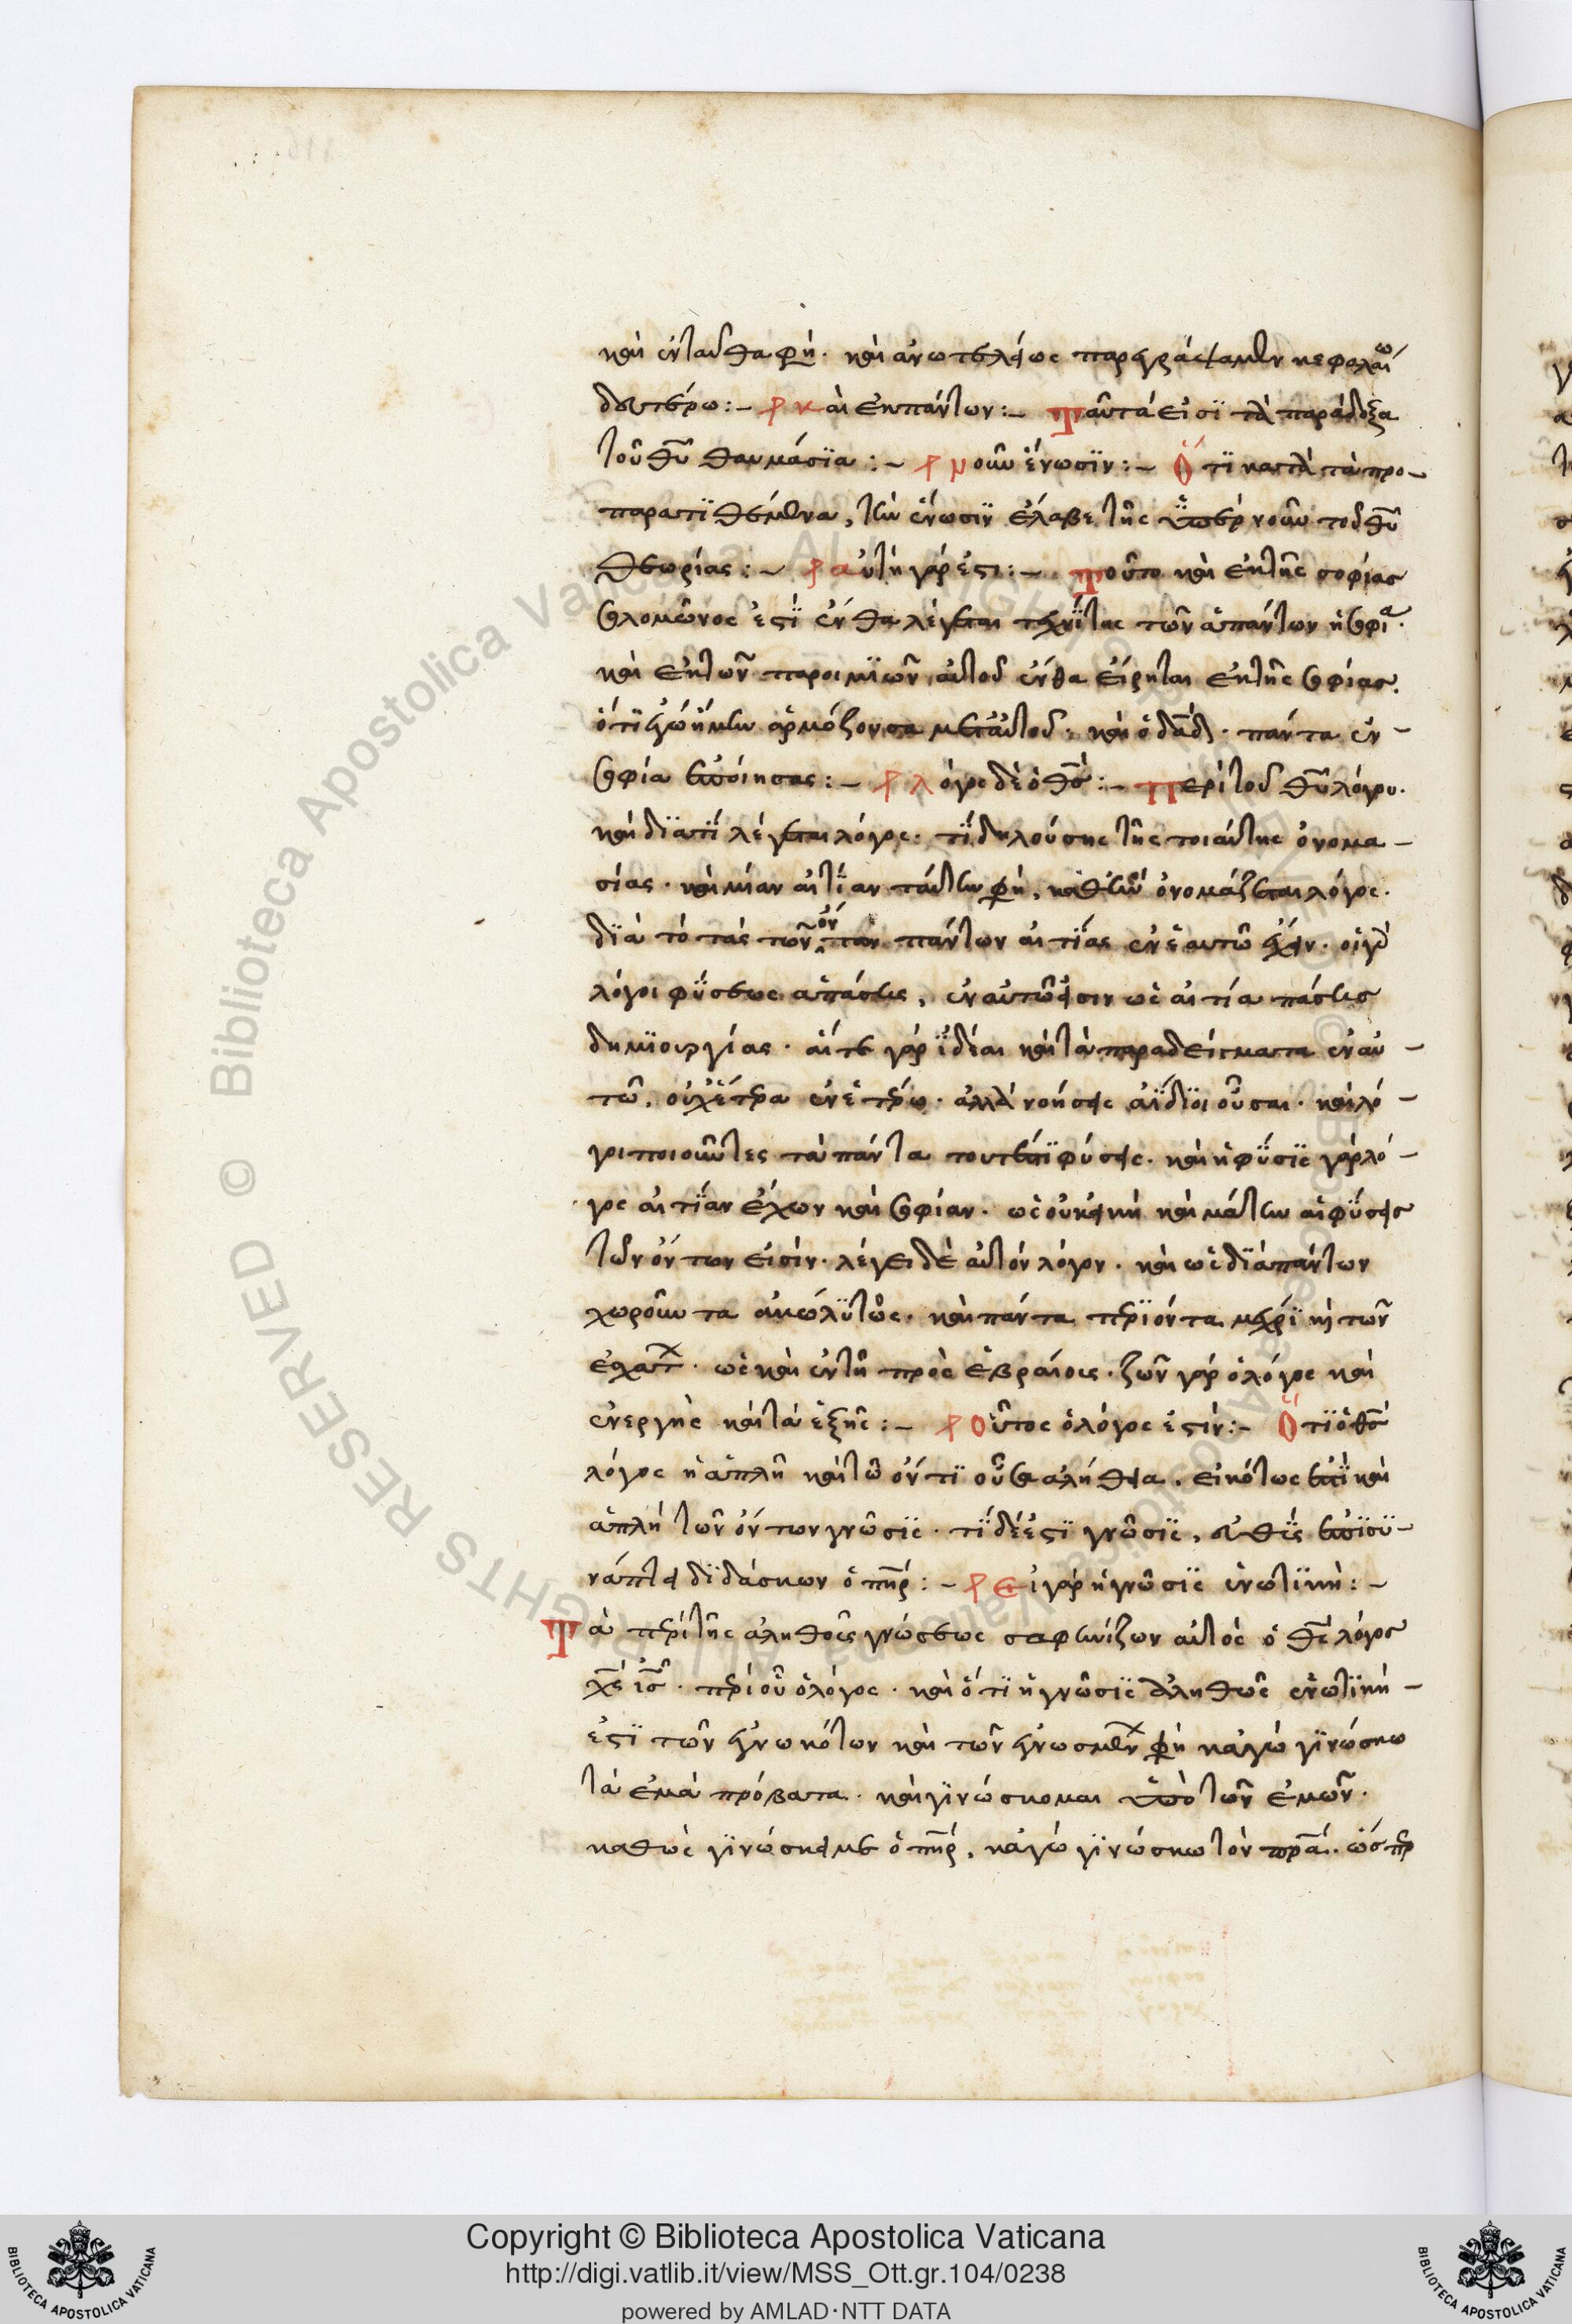 καὶ ἐνταῦθα φη̣. καὶ ἀνωτελείως παρεγράψαμεν κεφαλαίω
δευτέρω:- καὶ ἐκπάντων:- Ταῦτά εἰσϊ τὰ παράδοξα
τοῦ θῦ θαυμάσϊα:- νοῦν ἕνωσϊν:- Ὅτϊ κατὰ τὰ προ-
παρατϊθέμενα, τὴν ἕνωσιν ἔλαβε τῆς ὑπὲρ νοῦν τοῦ θῦ
θεωρίας:- αὐτὴ γάρ ἐστι:- Τοῦτο καὶ ἐκ τῆς σοφίας
σολομῶνος ἐστϊ ἔνθα λέγεται τεχνῖτης τῶν ἁπάντων ἡ σοφία.
καὶ ἐκ τῶν παροιμϊῶν αὐτοῦ ἔνθα εἴρηται ἐκ τῆς σοφίας.
ὅτϊ ἐγὼ ἤμην ἁρμόζουσα μετ' αὐτοῦ. καὶ ὁ δᾱδ. πάντα ἐν-
σοφία ἐποίησας:- λόγος δὲ ὁ θς̄:- Περὶ τοῦ θῦ λόγου.
καὶ δϊατϊ λέγεται λόγος. τί δηλούσης τῆς τοιαύτης ὀνομα-
σίας. καὶ μίαν αἰτίαν ταύτην φη̣, καθ' ἣν ὀνομάζεται λόγος.
δϊὰ τὸ τὰς τῶν ὄντων πάντων αἰτίας ἐν ἑαυτῶ ἔχειν. οἱ γὰρ
λόγοι φύσεως ἁπάσης, ἐν αὐτῶ εἰσιν ὡς αἰτία πάσης
δημϊουργίας. αἵ τε γὰρ ἰδέαι καὶ τὰ παραδείγματα ἐν αυ-
τῶ, οὐχ' ἕτερα ἐν ἑτέρω. ἀλλὰ νοήσεις ἀΐδϊοι οὖσαι. καὶ λό-
γοι ποιοῦντες τὰ πάντα τουτέστϊ φύσεις. καὶ ἡ φύσϊς γὰρ λό-
γος αἰτίαν ἔχων καὶ σοφίαν. ὡς οὐκ εἰκῆ καὶ μάτην αἱ φύσεις
τῶν ὄντων εἰσίν. λέγει δὲ αὐτὸν λόγον. καὶ ὡς δϊὰ πάντων
χωροῦντα ἀκωλύτως. καὶ πάντα περϊιόντα μέχρϊ καὶ τῶν
ἐσχάτ. ὡς καὶ ἐν τῆ πρὸς ἑβραίους. ζῶν γὰρ ὁ λόγος καὶ
ἐνεργὴς καὶ τὰ ἑξῆς:- οὗτος ὁ λόγος ἐστίν:- Ὅτϊ ὁ θς̄
λόγος ἡ ἁπλῆ καὶ τῶ ὄντϊ οὖσα ἀλήθεια. εἰκότως ἐστὶ καὶ
ἁπλῆ τῶν ὄντων γνῶσϊς. τί δέ ἐστϊ γνῶσϊς,
νάπτει δϊδάσκων ὁ πηρ̄:- εἰ γὰρ ἡ γνῶσϊς ἑνωτϊκὴ:-
Τὰ περὶ τῆς ἀληθοῦς γνώσεως σαφηνίζων αὐτὸς ὁ θς̄ λόγος
χς̄ ις̄. περὶ οὗ ὁ λόγος. καὶ ὅτϊ ἡ γνῶσϊς ἀληθῶς ἑνωτϊκή-
ἐστϊ τῶν ἐγνωκότων καὶ τῶν ἐγνωσμέν φη̣ κἀγὼ γϊνώσκω
τὰ ἐμὰ πρόβατα. καὶ γϊνώσκομαι ὑπὸ τῶν ἐμῶν.
καθὼς γϊνώσκει με ὁ πηρ̄, κἀγὼ γϊνώσκω τὸν πρ̄α. ὥσπερ
Copyright © Biblioteca Apostolica Vaticana
http://digi.vatlib.it/view/MSS_Ott.gr.104/0238
powered by AMLAD·NTT DATA
BIBLIOTECA APOSTOLICA VATICANA
BIBLIOTECA APOSTOLICA VATICANA